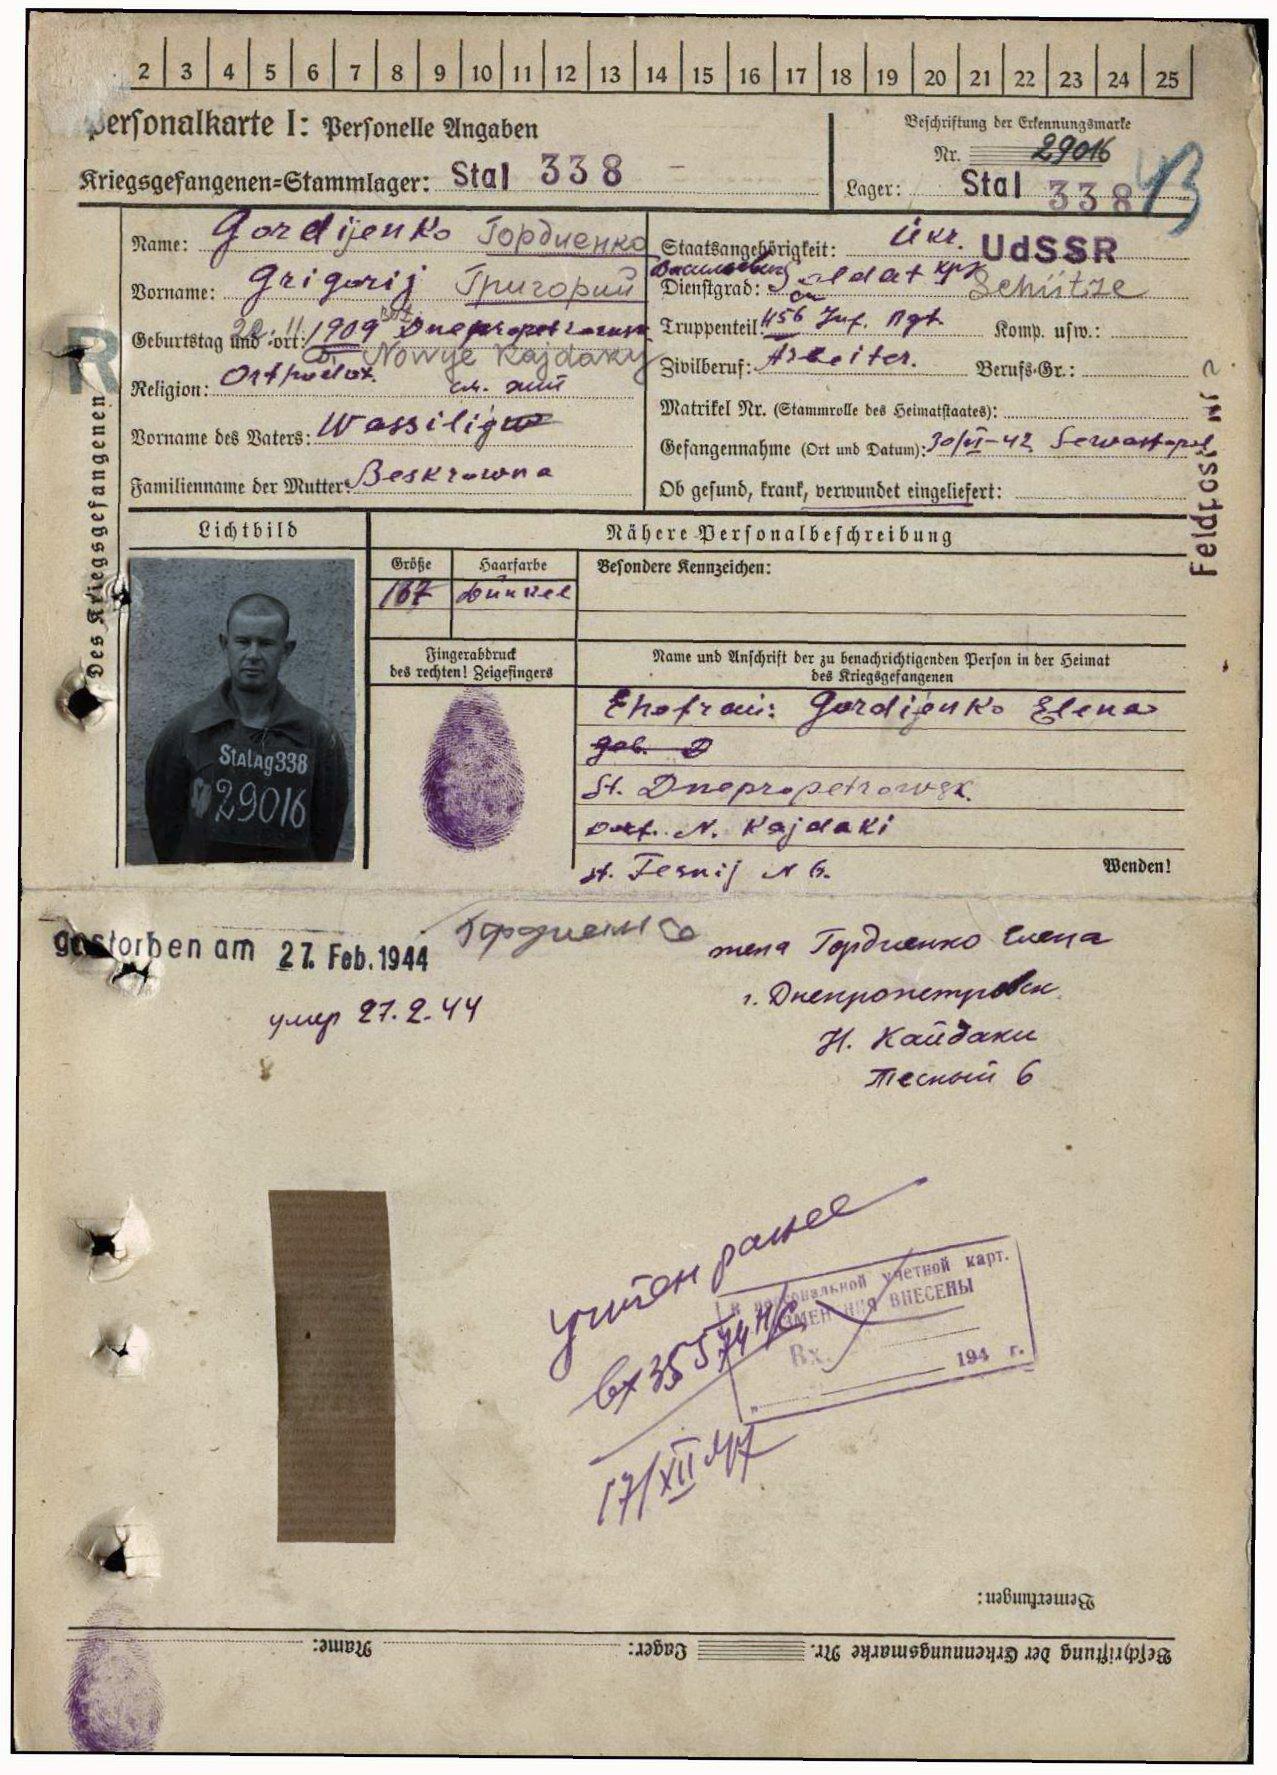 2 3 4 5 6 7 8 9 10 11 12 13 14 15 16 17 18 19 20 21 22 23 24 25
Personalkarte I: Personelle Angaben
Beschriftung der Erkennungsmarke
Nr. 29016
Kriegsgefangenen=Stammlager: Stal 338
Lager: Stal 338
Des Kriegsgefangenen
Name: Gordijenko Гордиенко
Vorname: Grigorij Григорий
Geburtstag und =ort: 1909 Dnepropetrowsk
Nowye Kajdaky
Religion: Orthodox.
Vorname des Vaters: Wassilij
Familienname der Mutter: Beskrowna
Staatsangehörigkeit: Ukr. UdSSR
Васильевич
Dienstgrad: Soldat Schütze
Truppenteil: 456 Inf. Rgt. Komp. usw.:
Zivilberuf: Arbeiter. Berufs-Gr.:
Matrikel Nr. (Stammrolle des Heimatstaates):
Gefangennahme (Ort und Datum): 30/VI-42 Sewastopol
Ob gesund, krank, verwundet eingeliefert:
Feldpost Nr
Lichtbild
Nähere Personalbeschreibung
Größe Haarfarbe Besondere Kennzeichen:
167 dunkel
Fingerabdruck
des rechten! Zeigefingers
Name und Anschrift der zu benachrichtigenden Person in der Heimat
des Kriegsgefangenen
Stalag 338
29016
Ehefrau: Gordijenko Elena
geb.
St. Dnepropetrowsk.
Dorf. N. Kajdaki
st. Tesnij N 6.
Wenden!
gestorben am 27. Feb. 1944
Гордиенко
умер 27.2.44
жена Гордиенко Елена
г. Днепропетровск
Н. Кайдаки
Тесный 6
учтен ранее
вх 35574 н/с
17/XII 47
В персональной учетной карт.
ИЗМЕНЕНИЯ ВНЕСЕНЫ
Вх.
194 г.
Bemerkungen:
Beschriftung der Erkennungsmarke Nr. Lager: Name: